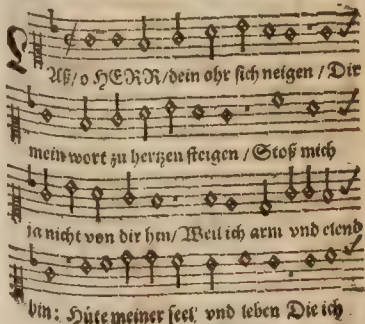 Laß/o HERR/dein ohr sich neigen / Dir
mein wort zu hertzen steigen / Stoß mich
ja nicht von dir hin/ Weil ich arm vnd elend
bin: Hüte meiner seel' vnd leben Die ich